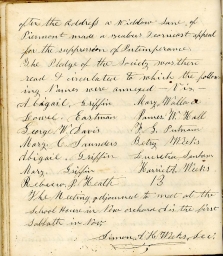 after the Address a Widdow Lane, of
Piermont made a zealous & earnest appeal
for the suppression of Intemperance
The Pledge of the Society was then
read & circulated to which the follow-
ing Names were annexed - Viz -
Abigail, Griffin Mary Wallace
Lowel, Eastman James W. Hall
George W Davis F. G. Putnam
Mary, C Saunders Betsy Weeks
Abigail, Griffin Lucretia Sanborn
Mary, Griffin Harriett Weeks
Rebecca, P. Heath 13
The Meeting adjourned to met at the
School House in low orchard on the first
Sabbath in Nov
Simon, A. H. Weeks, Sec.